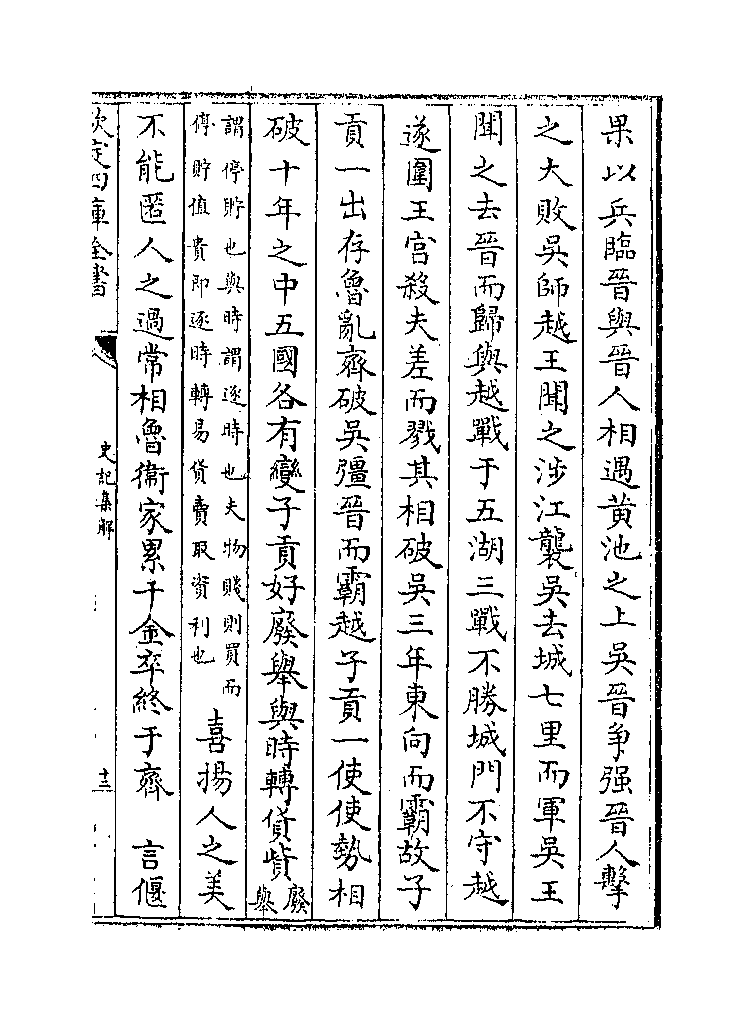 果以兵臨晉與晉人相遇黄池之上吳晉争强晉人擊
之大敗吳師越王聞之涉江襲吳去城七里而軍吳王
聞之去晉而歸與越戰于五湖三戰不勝城門不守越
遂圍王宫殺夫差而戮其相破吳三年東向而霸故子
貢一出存魯亂齊破吳彊晉而霸越子貢一使使勢相
破十年之中五國各有變子貢好廢舉與時轉貨貲
廢
舉
謂停貯也與時謂逐時也夫物賤則買而
停貯值貴即逐時轉易貨賣取資利也
喜揚人之美
不能匿人之過常相魯衞家累千金卒終于齊　言偃
欽定四庫全書
史記集解
十三